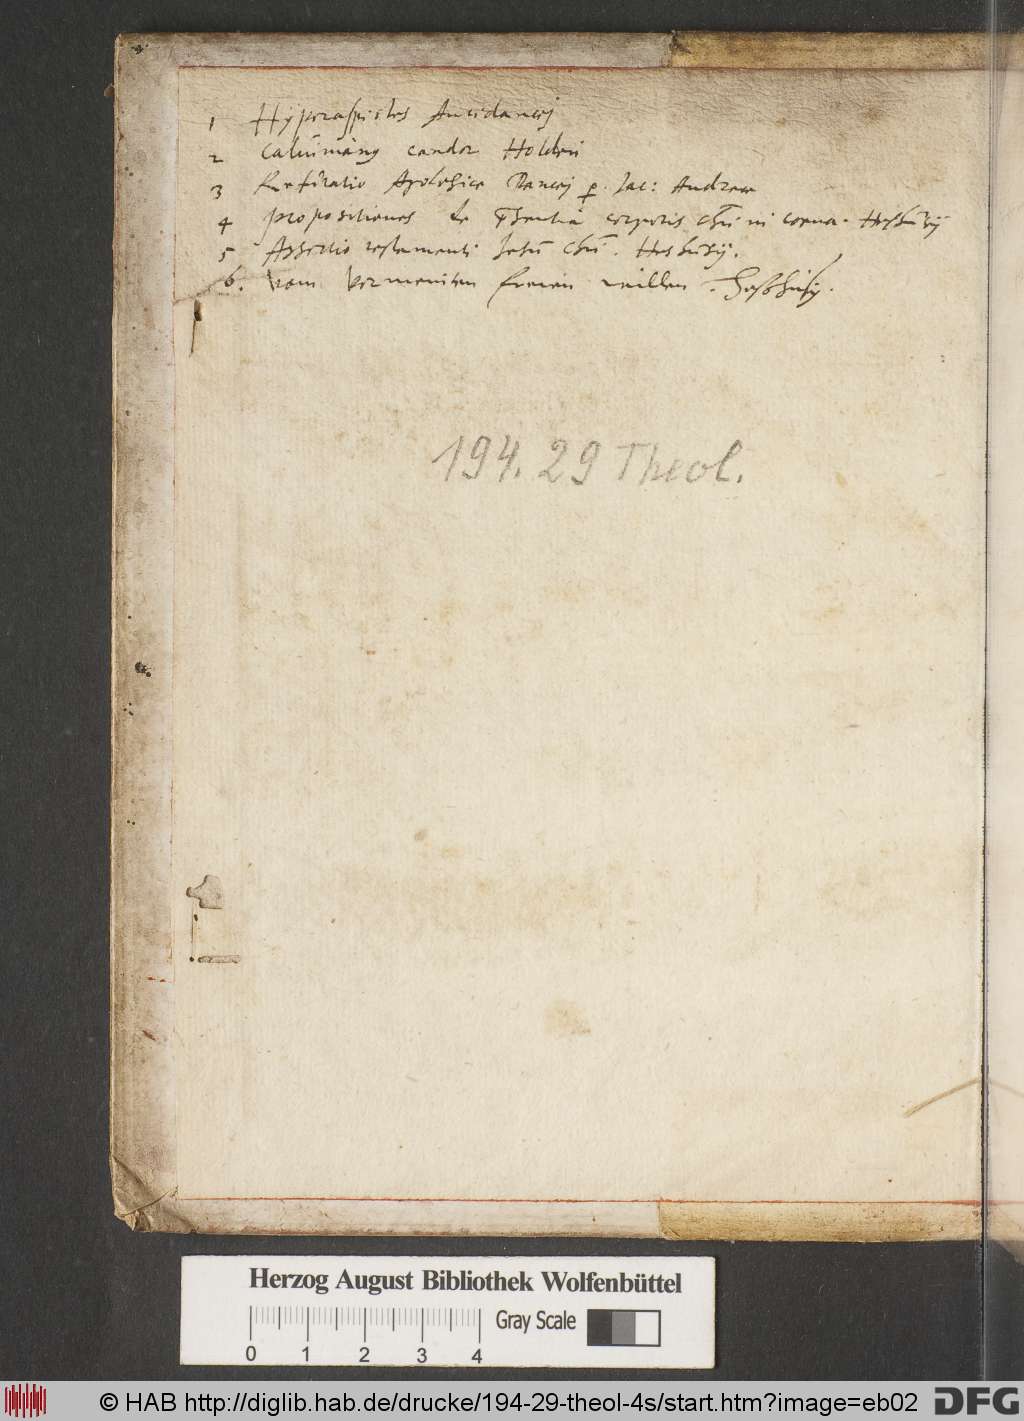 1 Hyperaspistes Antidanaej
2 Caluinianus candor Holderi
3 Refutatio Apologiae Danaej p. Jac: Andreae
4 propositiones de corporis Chri in coena. Heshusij
5 Assertio testamenti Jesu Chri. Heshusij.
6. Vom vermeinten freien willen. Heshusij.
194. 29 Theol.
Herzog August Bibliothek Wolfenbüttel
Gray Scale
0 1 2 3 4
© HAB http://diglib.hab.de/drucke/194-29-theol-4s/start.htm?image=eb02
DFG